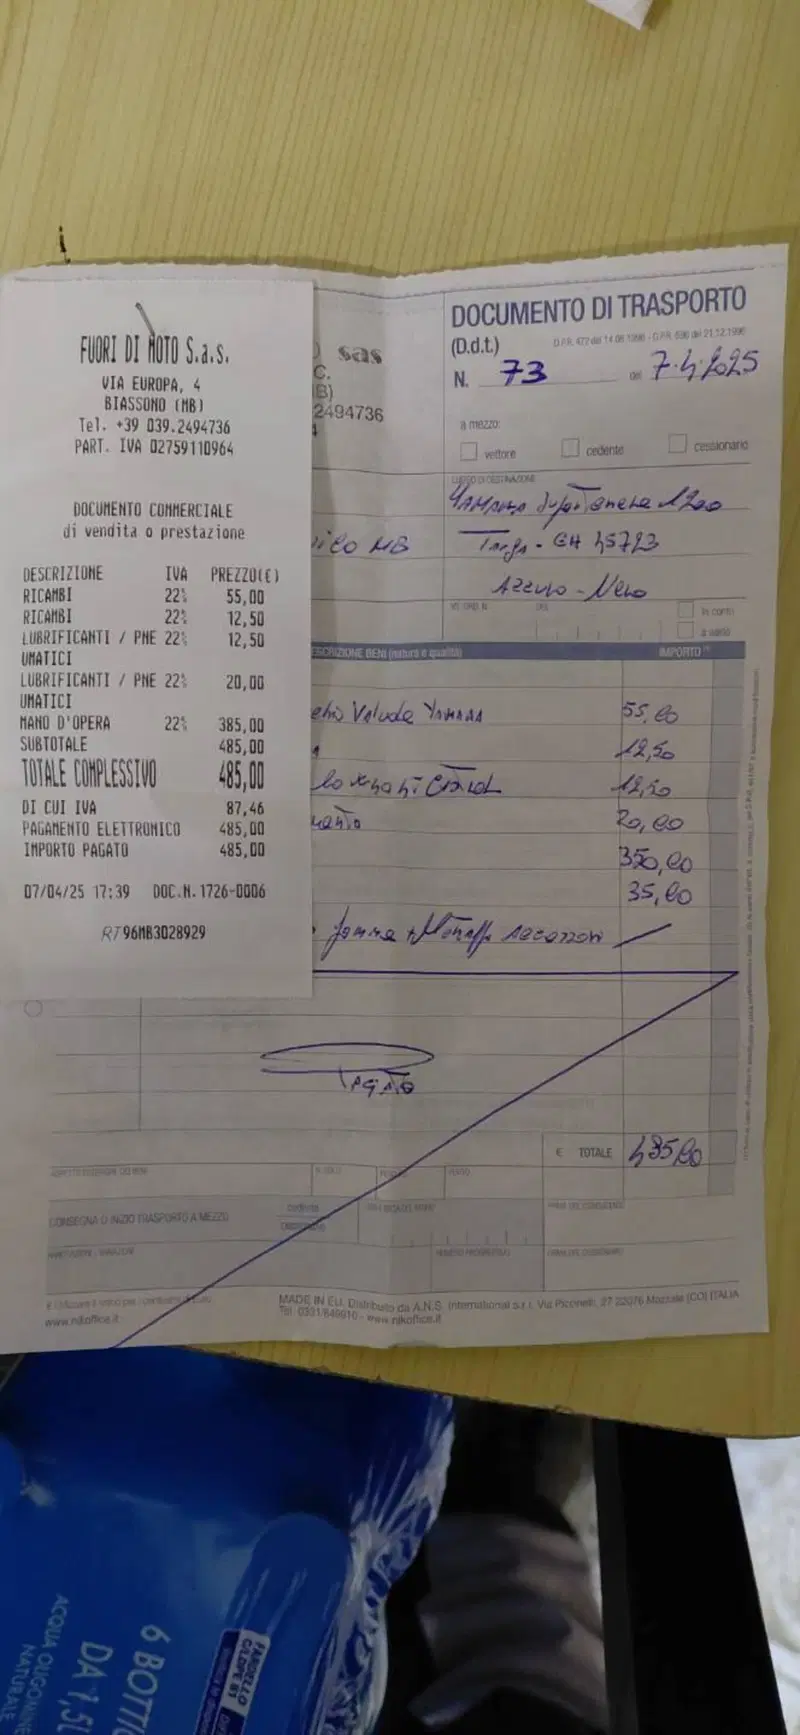 FUORI DI MOTO S.a.s.
VIA EUROPA, 4
BIASSONO (MB)
Tel. +39 039.2494736
PART. IVA 02759110964
DOCUMENTO COMMERCIALE
di vendita o prestazione
DESCRIZIONE IVA PREZZO(€)
RICAMBI 22% 55,00
RICAMBI 22% 12,50
LUBRIFICANTI / PNE 22% 12,50
UMATICI
LUBRIFICANTI / PNE 22% 20,00
UMATICI
MANO D'OPERA 22% 385,00
SUBTOTALE 485,00
TOTALE COMPLESSIVO 485,00
DI CUI IVA 87,46
PAGAMENTO ELETTRONICO 485,00
IMPORTO PAGATO 485,00
07/04/25 17:39 DOC.N.1726-0006
RT 96MB3028929
sas
C.
B)
2494736
4
DOCUMENTO DI TRASPORTO
(D.d.t.) D.P.R. 472 del 14.08.1996 - D.P.R. 696 del 21.12.1996
N. 73 del 7.4.2025
a mezzo:
vettore cedente cessionario
LUOGO DI DESTINAZIONE
Yamaha 1200
MB Targa - 45723
Azzurro - Nero
in conto
a saldo
ESCRIZIONE BENI (natura e qualità) IMPORTO
Valvola Yamaha 55,00
12,50
12,50
20,00
350,00
35,00
Pagato
€ TOTALE 485,00
ASPETTO ESTERIORE DEI BENI N. COLLI
CONSEGNA O INIZIO TRASPORTO A MEZZO cedente
MADE IN EU. Distribuito da A.N.S. International s.r.l. Via Piccinelli, 27 22076 Mozzate (CO) ITALIA
www.nikoffice.it
Tel. 0331/849910 - www.nikoffice.it
6 BOTTI
DA 1,5L
ACQUA OLIGOMINE
NATURALE
FARDELLO